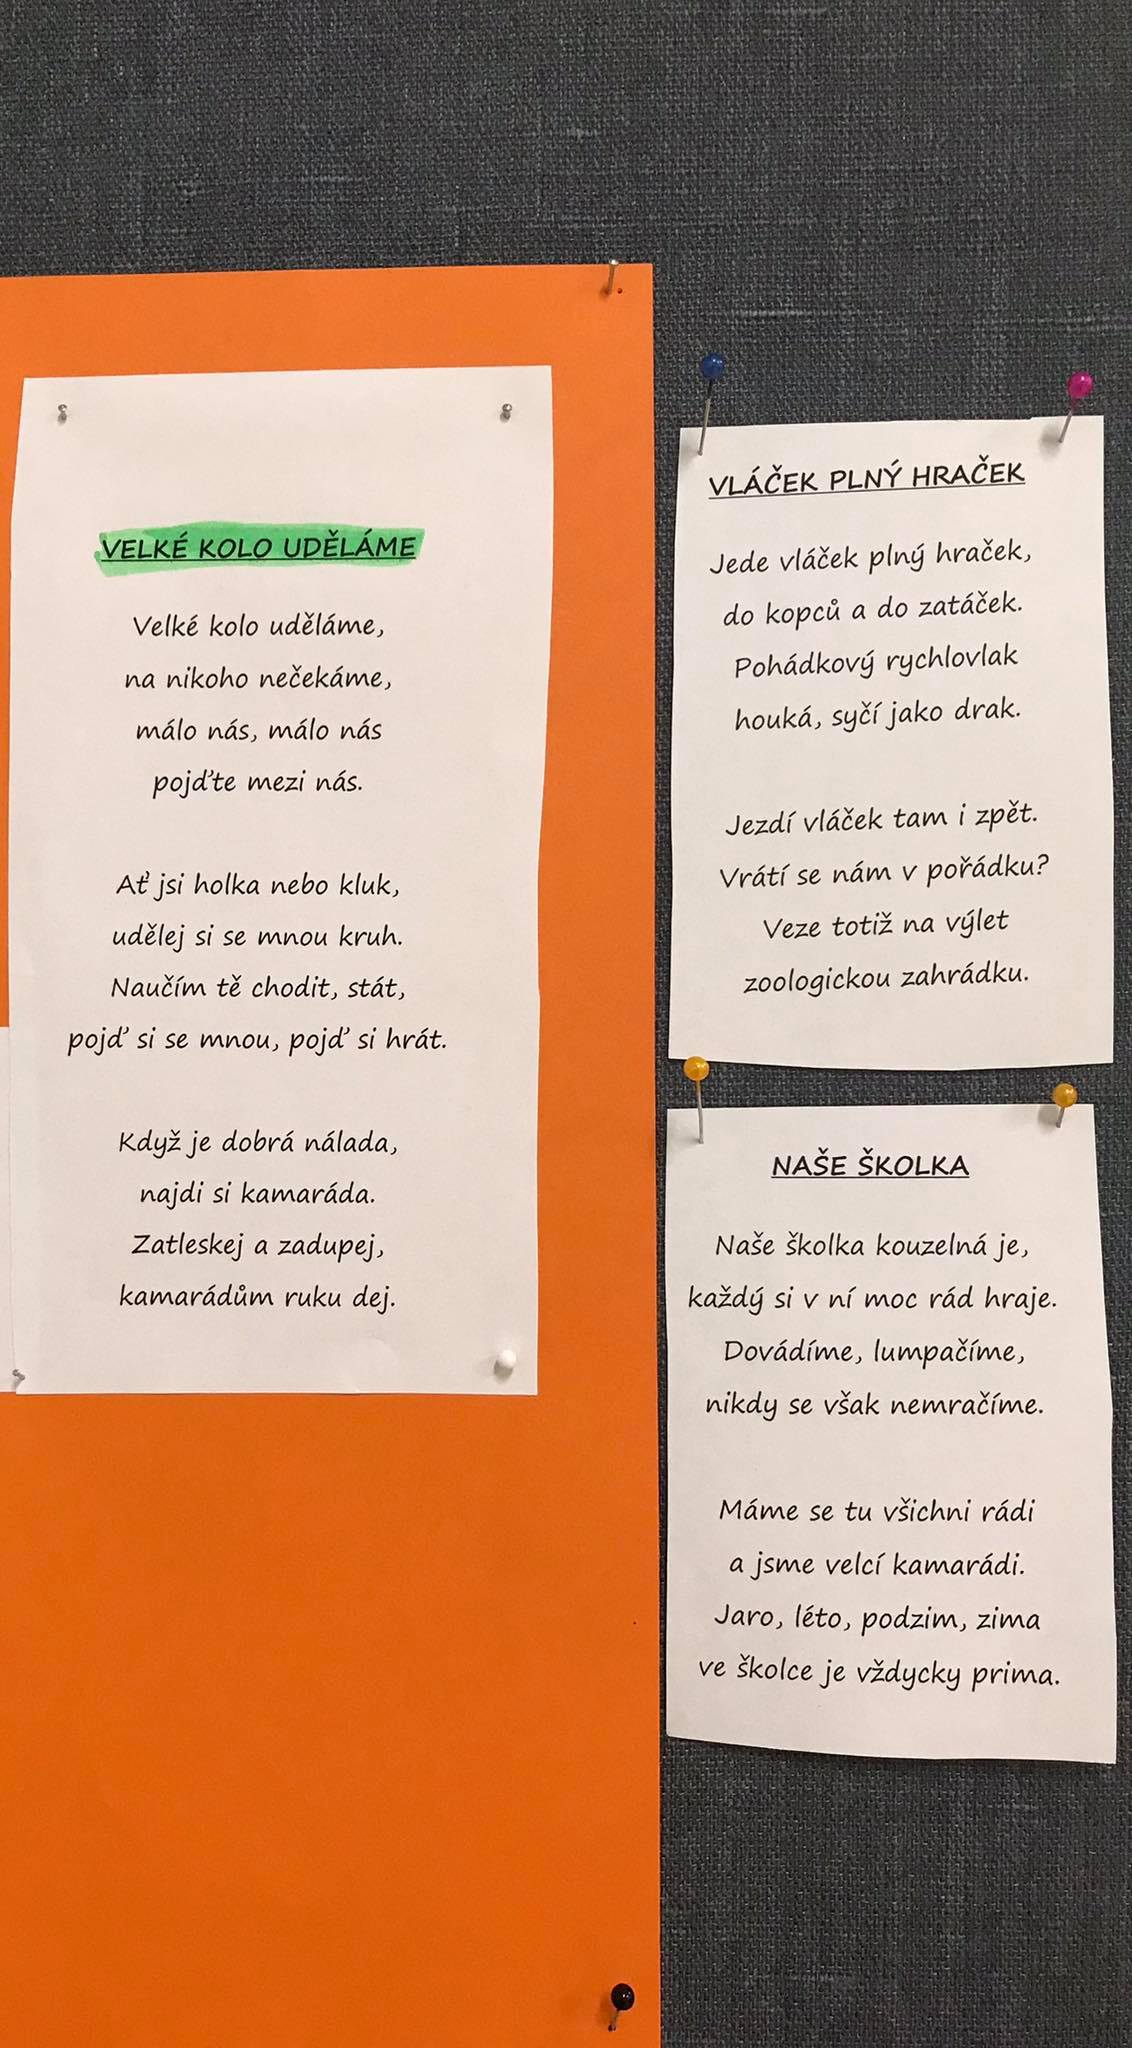 VELKÉ KOLO UDĚLÁME
Velké kolo uděláme,
na nikoho nečekáme,
málo nás, málo nás
pojďte mezi nás.
Ať jsi holka nebo kluk,
udělej si se mnou kruh.
Naučím tě chodit, stát,
pojď si se mnou, pojď si hrát.
Když je dobrá nálada,
najdi si kamaráda.
Zatleskej a zadupej,
kamarádům ruku dej.
VLÁČEK PLNÝ HRAČEK
Jede vláček plný hraček,
do kopců a do zatáček.
Pohádkový rychlovlak
houká, syčí jako drak.
Jezdí vláček tam i zpět.
Vrátí se nám v pořádku?
Veze totiž na výlet
zoologickou zahrádku.
NAŠE ŠKOLKA
Naše školka kouzelná je,
každý si v ní moc rád hraje.
Dovádíme, lumpačíme,
nikdy se však nemračíme.
Máme se tu všichni rádi
a jsme velcí kamarádi.
Jaro, léto, podzim, zima
ve školce je vždycky prima.